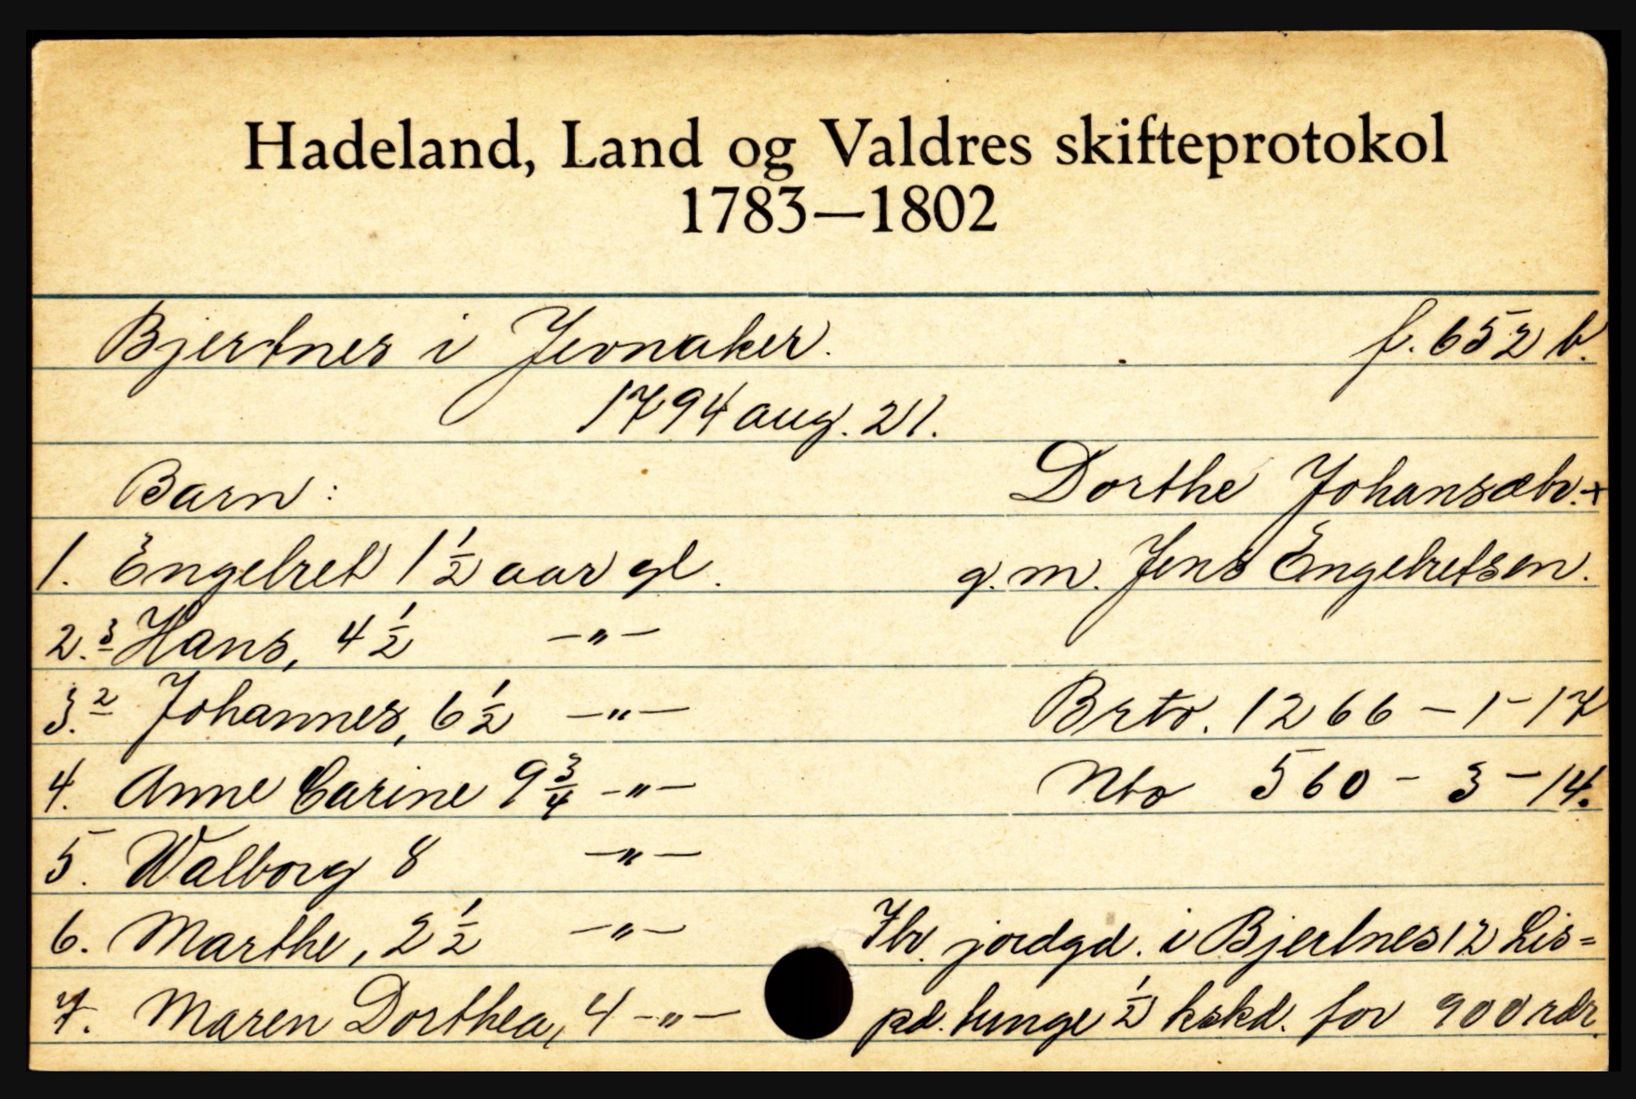 Hadeland, Land og Valdres skifteprotokol
1783—1802
Bjertnes i Jevnaker. f. 652 b.
1794 aug. 21.
Barn: Dorthe Johansdtr. +
1. Engebret 1 1/2 aar gl. g. m. Jens Engebretsen.
2. 3 Hans, 4 1/2 —"—
3. 2 Johannes, 6 1/2 —"— Brto. 1266 – 1 – 17
4. Anne Carine 9 3/4 —"— Nto 560 – 3 – 14.
5. Walborg 8 —"—
6. Marthe, 2 1/2 —"— Ibr. jordgd. i Bjertnes 12 Lis=
7. Maren Dorthea, 4 —"— pd. tunge 1/2 kskd. for 900 rdr.